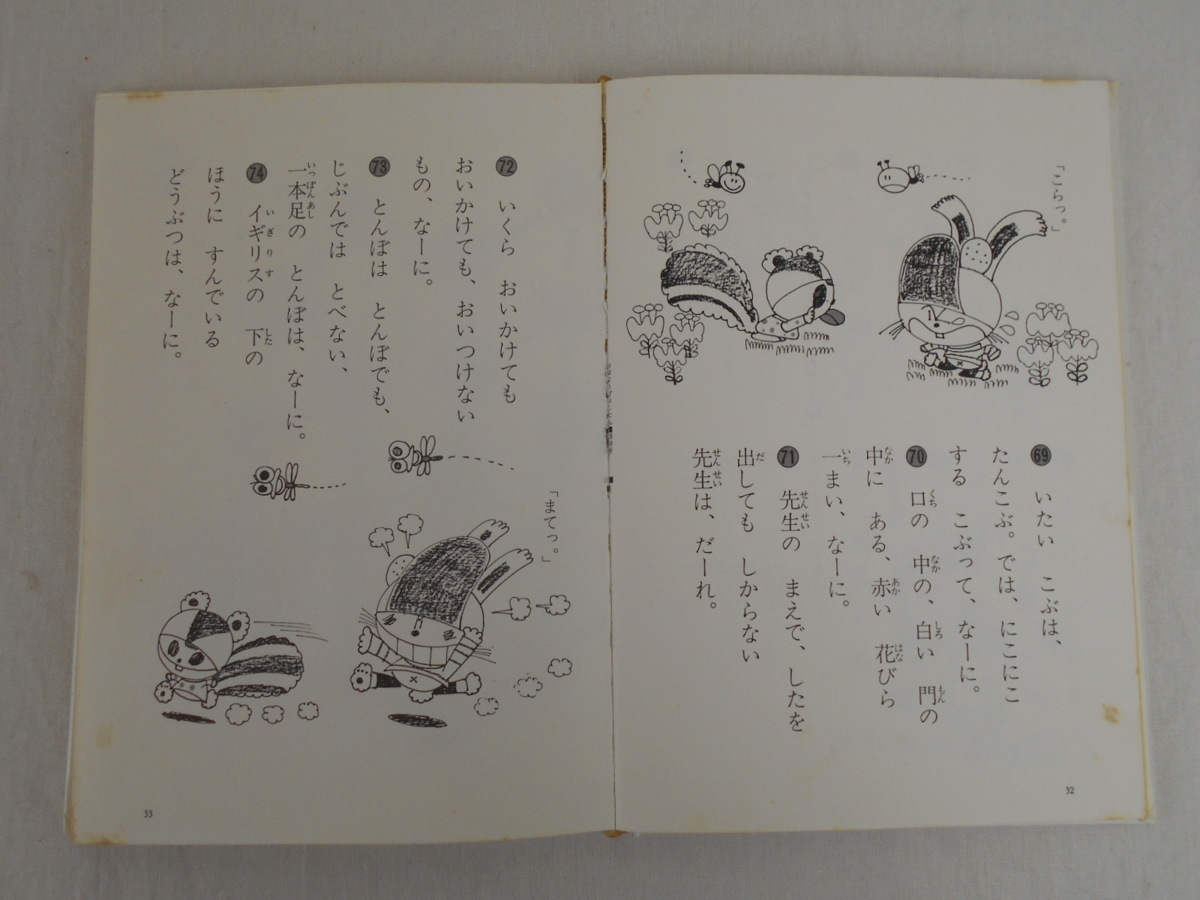 「こらっ。」
69 いたい こぶは、
たんこぶ。では、にこにこ
する こぶって、なーに。
70 口の 中の、白い 門の
中に ある、赤い 花びら
一まい、なーに。
71 先生の まえで、したを
出しても しからない
先生は、だーれ。
32
72 いくら おいかけても
おいかけても、おいつけない
もの、なーに。
73 とんぼは とんぼでも、
じぶんでは とべない、
一本足の とんぼは、なーに。
74 イギリスの 下の
ほうに すんでいる
どうぶつは、なーに。
「まてっ。」
33